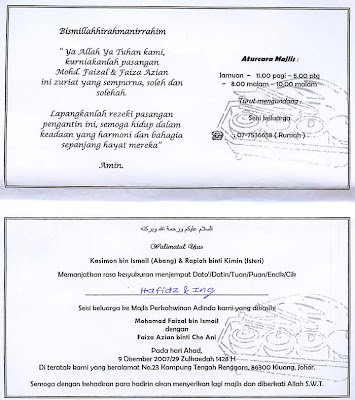 Bismillahhirahmanirrahim
" Ya Allah Ya Tuhan kami,
kurniakanlah pasangan
Mohd. Faizal & Faiza Azian
ini zuriat yang sempurna, soleh dan
solehah.
Lapangkanlah rezeki pasangan
pengantin ini, semoga hidup dalam
keadaan yang harmoni dan bahagia
sepanjang hayat mereka"
Amin.
Aturcara Majlis :
Jamuan - 11.00 pagi - 5.00 ptg
- 8.00 malam - 10.00 malam
Turut mengundang :
Seisi keluarga
☎ : 07-7536658 ( Rumah )
السلام عليكم ورحمة الله وبركاته
Walimatul Yuus
Kasimon bin Ismail (Abang) & Rapiah binti Kimin (Isteri)
Memanjatkan rasa kesyukuran menjemput Dato'/Datin/Tuan/Puan/Encik/Cik
Hafidz & Ing
Seisi keluarga ke Majlis Perkahwinan Adinda kami yang dikasihi
Mohamad Faizal bin Ismail
dengan
Faiza Azian binti Che Ani
Pada hari Ahad,
9 Disember 2007/29 Zulkaedah 1428 H
Di teratak kami yang beralamat No.23 Kampung Tengah Renggam, 86300 Kluang, Johor.
Semoga dengan kehadiran para hadirin akan menyerikan lagi majlis dan diberkati Allah S.W.T.